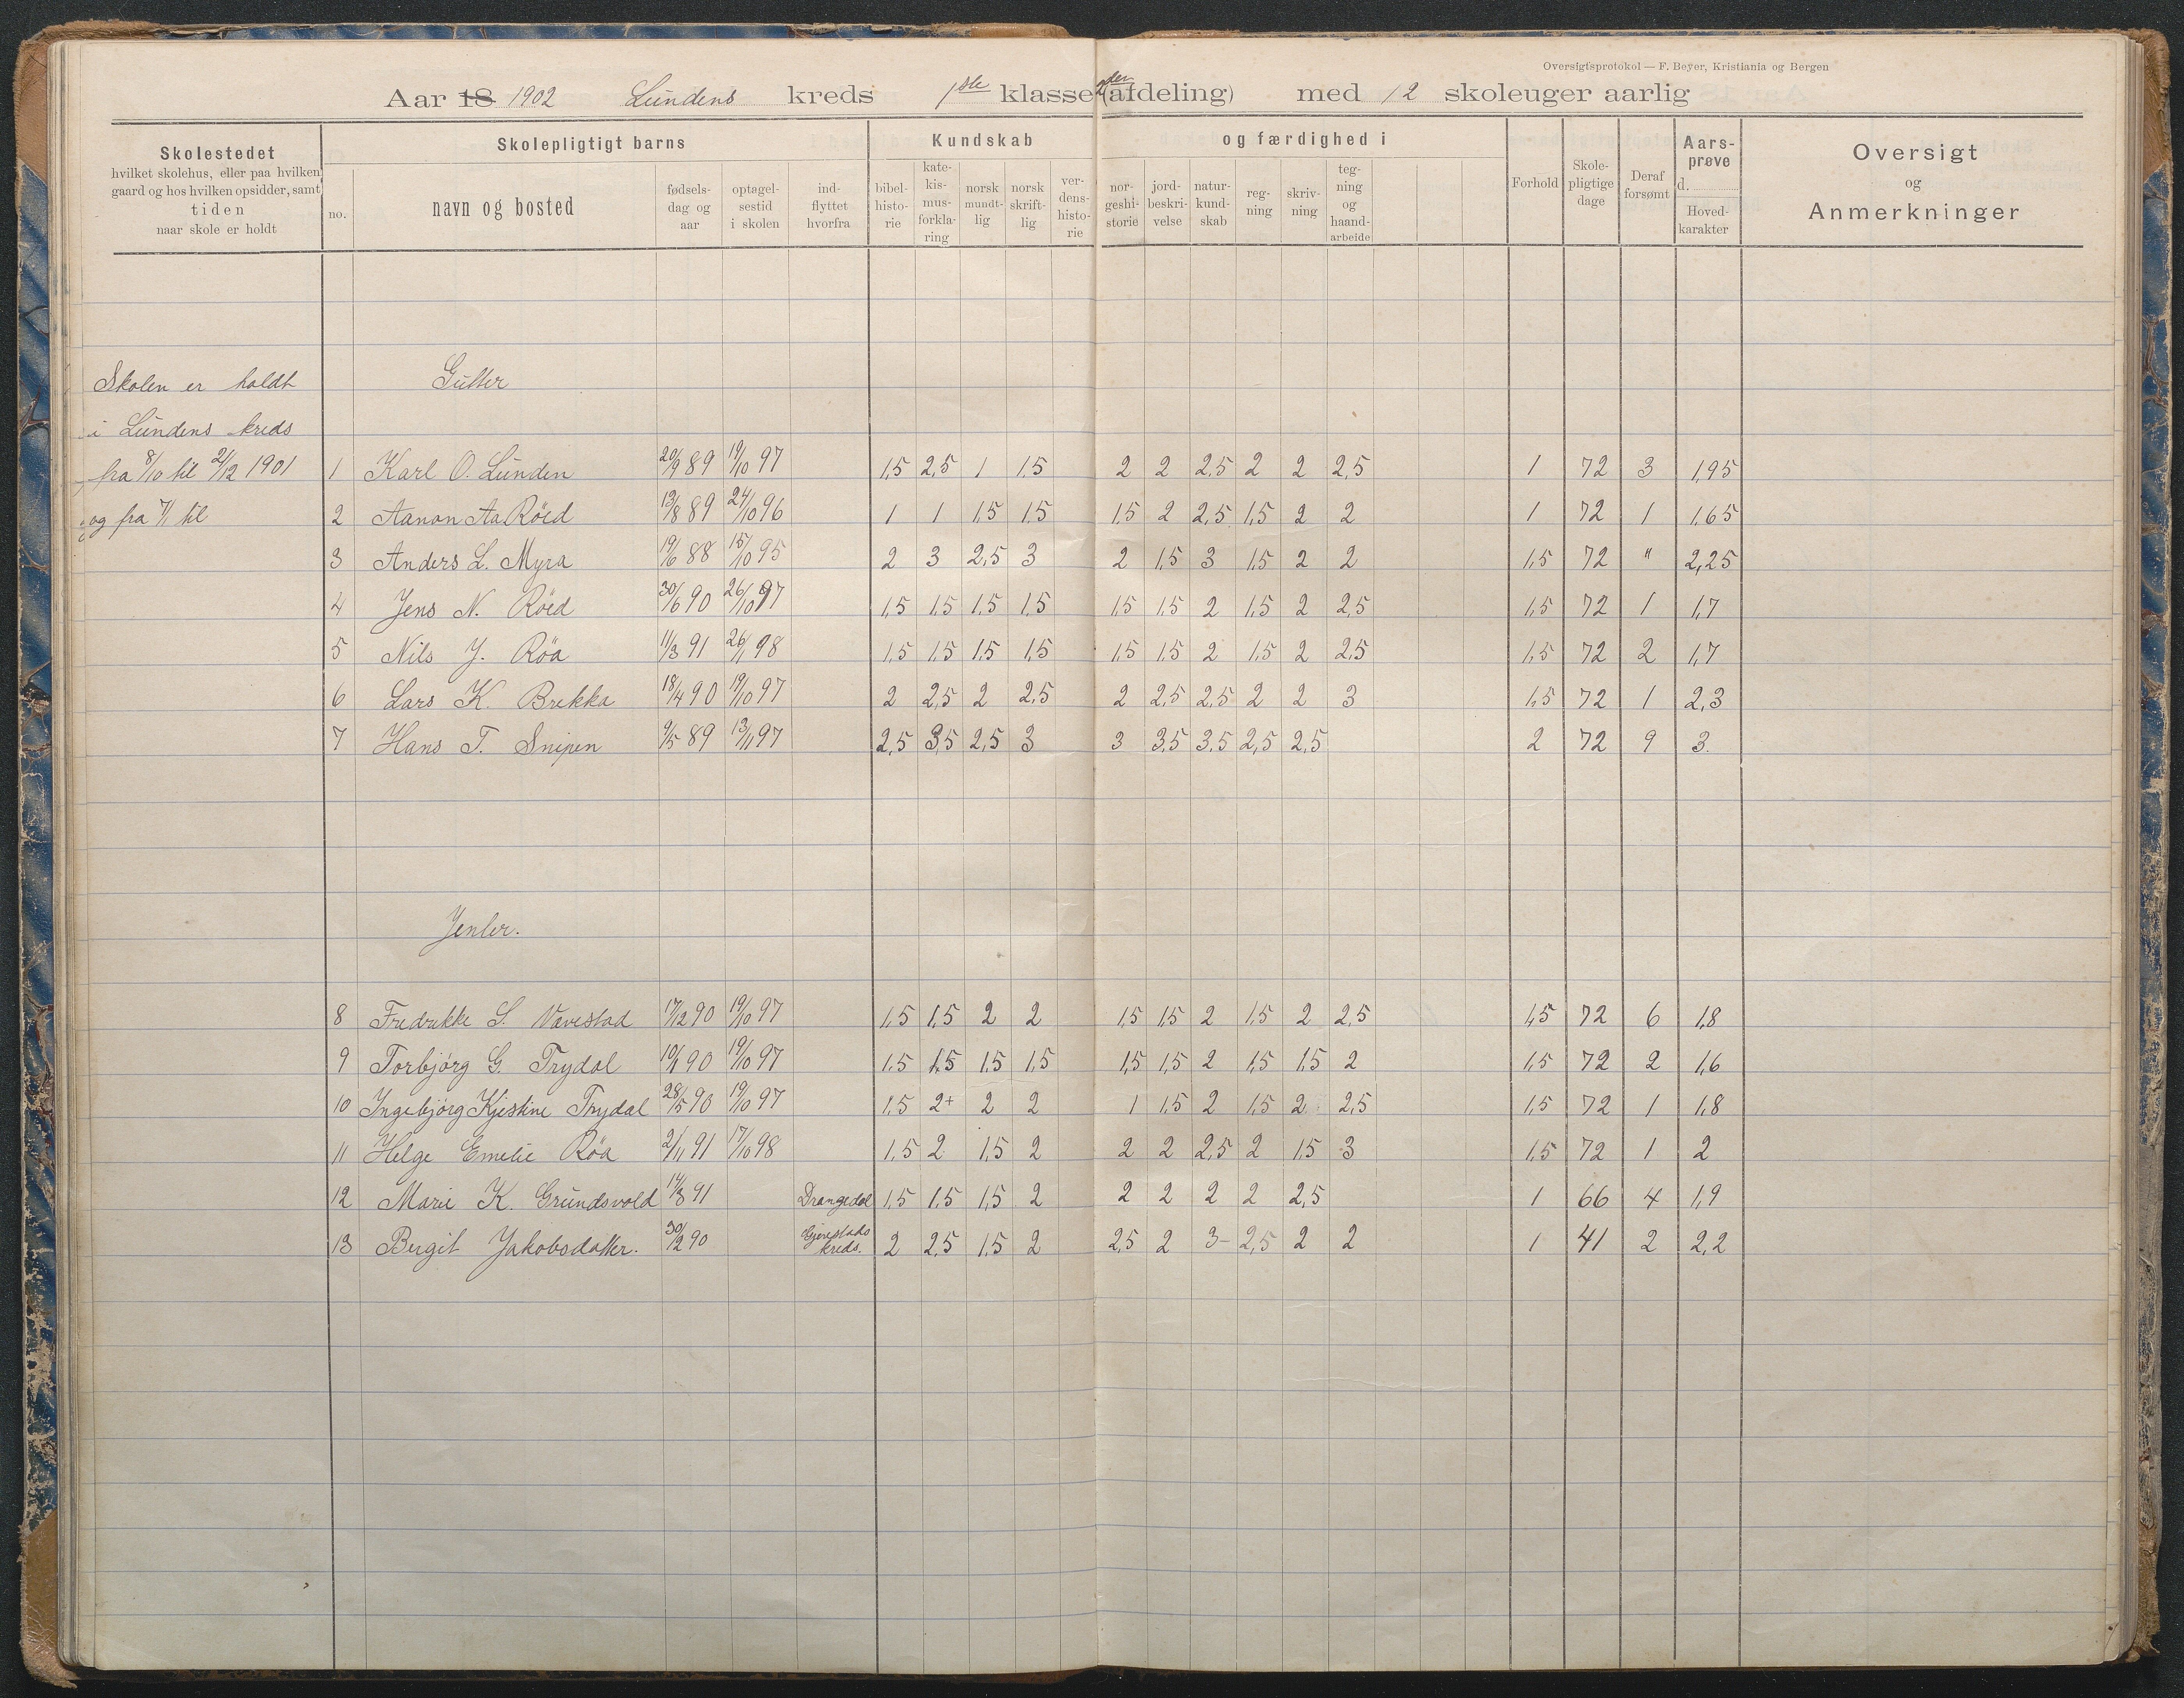 Oversigtsprotokol — F. Beyer, Kristiania og Bergen
Aar 18 1902 Lundens kreds 1ste klasse 2den (afdeling) med 12 skoleuger aarlig
Skolestedet
hvilket skolehus, eller paa hvilken
gaard og hos hvilken opsidder, samt
tiden
naar skole er holdt
Skolepligtigt barns
no.
navn og bosted
fødsels-
dag og
aar
optagel-
sestid
i skolen
ind-
flyttet
hvorfra
Kundskab og færdighed i
bibel-
histo-
rie
kate-
kis-
mus-
forkla-
ring
norsk
mundt-
lig
norsk
skrift-
lig
ver-
dens-
histo-
rie
nor-
geshi-
storie
jord-
beskri-
velse
natur-
kund-
skab
reg-
ning
skriv-
ning
teg-
ning
og
haand-
arbeide
Forhold
Skole-
pligtige
dage
Deraf
forsømt
Aars-
prøve
d.
Hoved-
karakter
Oversigt
og
Anmerkninger
Skolen er holdt
i Lundens kreds
fra 8/10 til 21/12 1901
og fra 7/1 til
Gutter
1 Karl O. Lunden 20/9 89 19/10 97 1,5 2,5 1 1,5 2 2 2,5 2 2 2,5 1 72 3 1,95
2 Aanon Aa Röed 13/8 89 24/10 96 1 1 1,5 1,5 1,5 2 2,5 1,5 2 2 1 72 1 1,65
3 Anders L. Myra 19/6 88 15/10 95 2 3 2,5 3 2 1,5 3 1,5 2 2 1,5 72 " 2,25
4 Jens N. Röed 30/6 90 26/10 97 1,5 1,5 1,5 1,5 1,5 1,5 2 1,5 2 2,5 1,5 72 1 1,7
5 Nils J. Röa 11/3 91 26/1 98 1,5 1,5 1,5 1,5 1,5 1,5 2 1,5 2 2,5 1,5 72 2 1,7
6 Lars K. Brekka 18/4 90 19/10 97 2 2,5 2 2,5 2 2,5 2,5 2 2 3 1,5 72 1 2,3
7 Hans T. Snipen 9/5 89 13/11 97 2,5 3,5 2,5 3 3 3,5 3,5 2,5 2,5 2 72 9 3.
Jenter.
8 Fredrikke S. Vævestad 17/12 90 19/10 97 1,5 1,5 2 2 1,5 1,5 2 1,5 2 2,5 1,5 72 6 1,8
9 Torbjörg G. Trydal 10/1 90 19/10 97 1,5 1,5 1,5 1,5 1,5 1,5 2 1,5 1,5 2 1,5 72 2 1,6
10 Ingebjörg Kjestine Trydal 28/5 90 19/10 97 1,5 2+ 2 2 1 1,5 2 1,5 2 2,5 1,5 72 1 1,8
11 Helge Emelie Röa 2/11 91 17/10 98 1,5 2 1,5 2 2 2 2,5 2 1,5 3 1,5 72 1 2
12 Marie K. Grundsvold 14/3 91 Drangedal 1,5 1,5 1,5 2 2 2 2 2 2,5 1 66 4 1,9
13 Bergit Jakobsdatter. 30/12 90 Gjerestads kreds. 2 2,5 1,5 2 2,5 2 3- 2,5 2 2 1 41 2 2,2